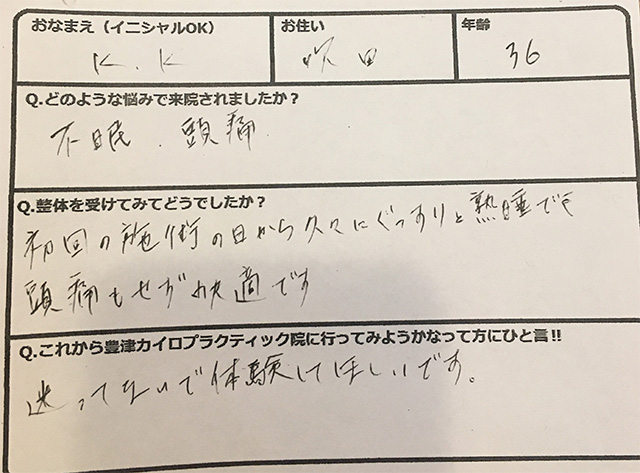 おなまえ（イニシャルOK） お住い 年齢
K.K 吹田 36
Q.どのような悩みで来院されましたか？
不眠．頭痛．
Q.整体を受けてみてどうでしたか？
初回の施術の日から久々にぐっすりと熟睡でき
頭痛もせず快適です
Q.これから豊津カイロプラクティック院に行ってみようかなって方にひと言!!
迷ってないで体験してほしいです。